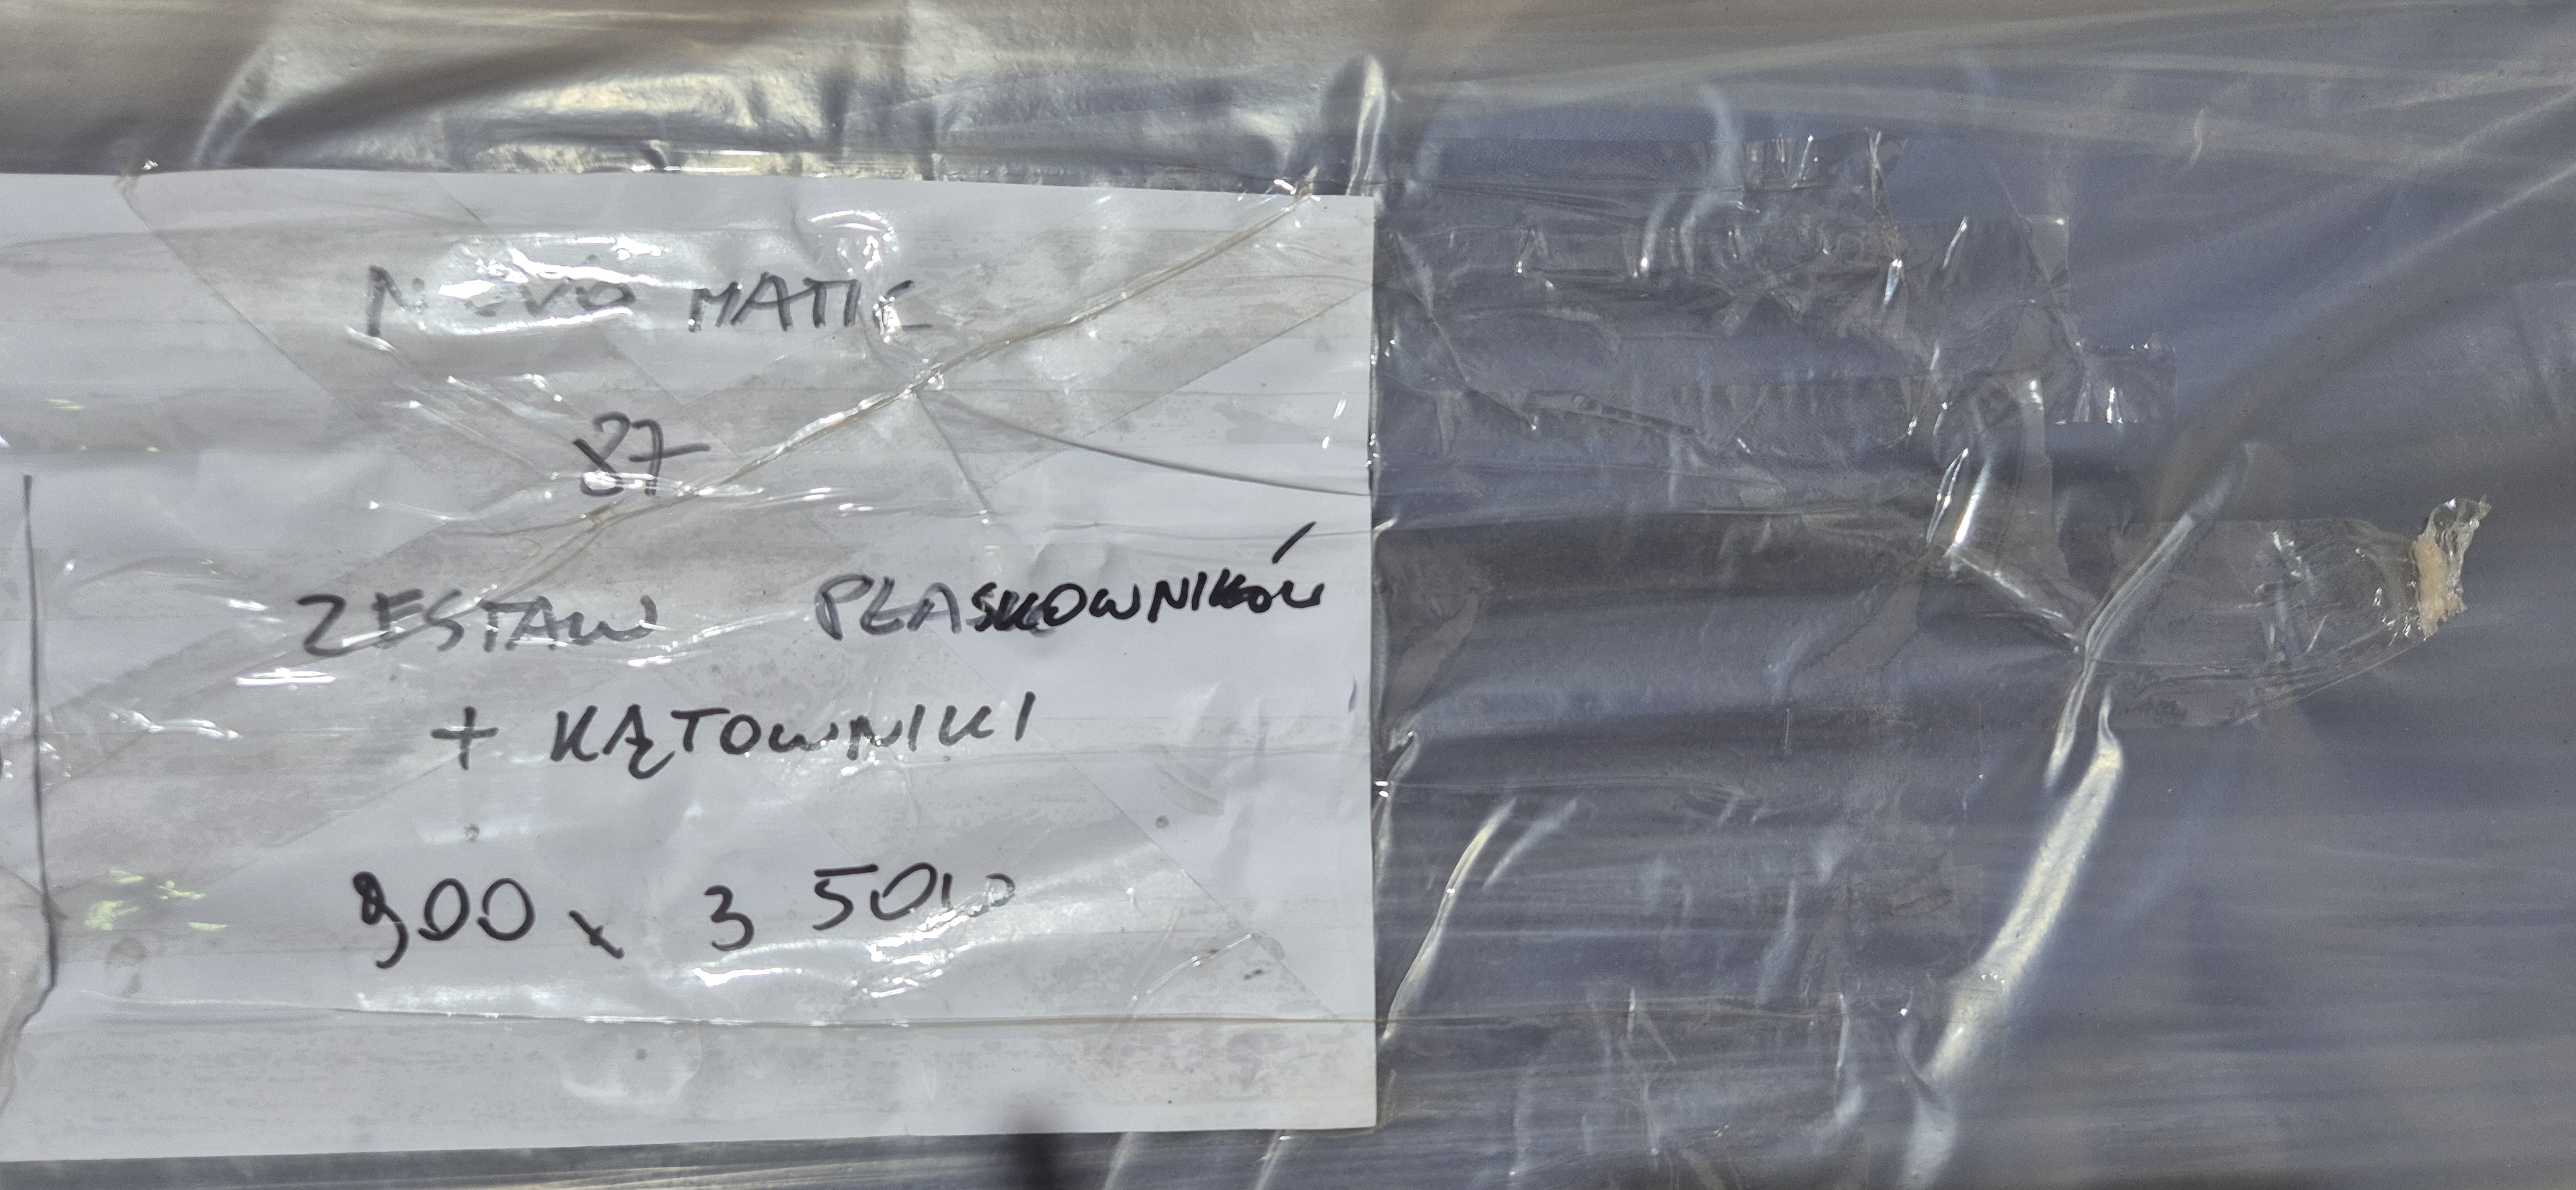 MATIC
87
ZESTAW PŁASKOWNIKÓW
+ KĄTOWNIKI
900 x 3 500